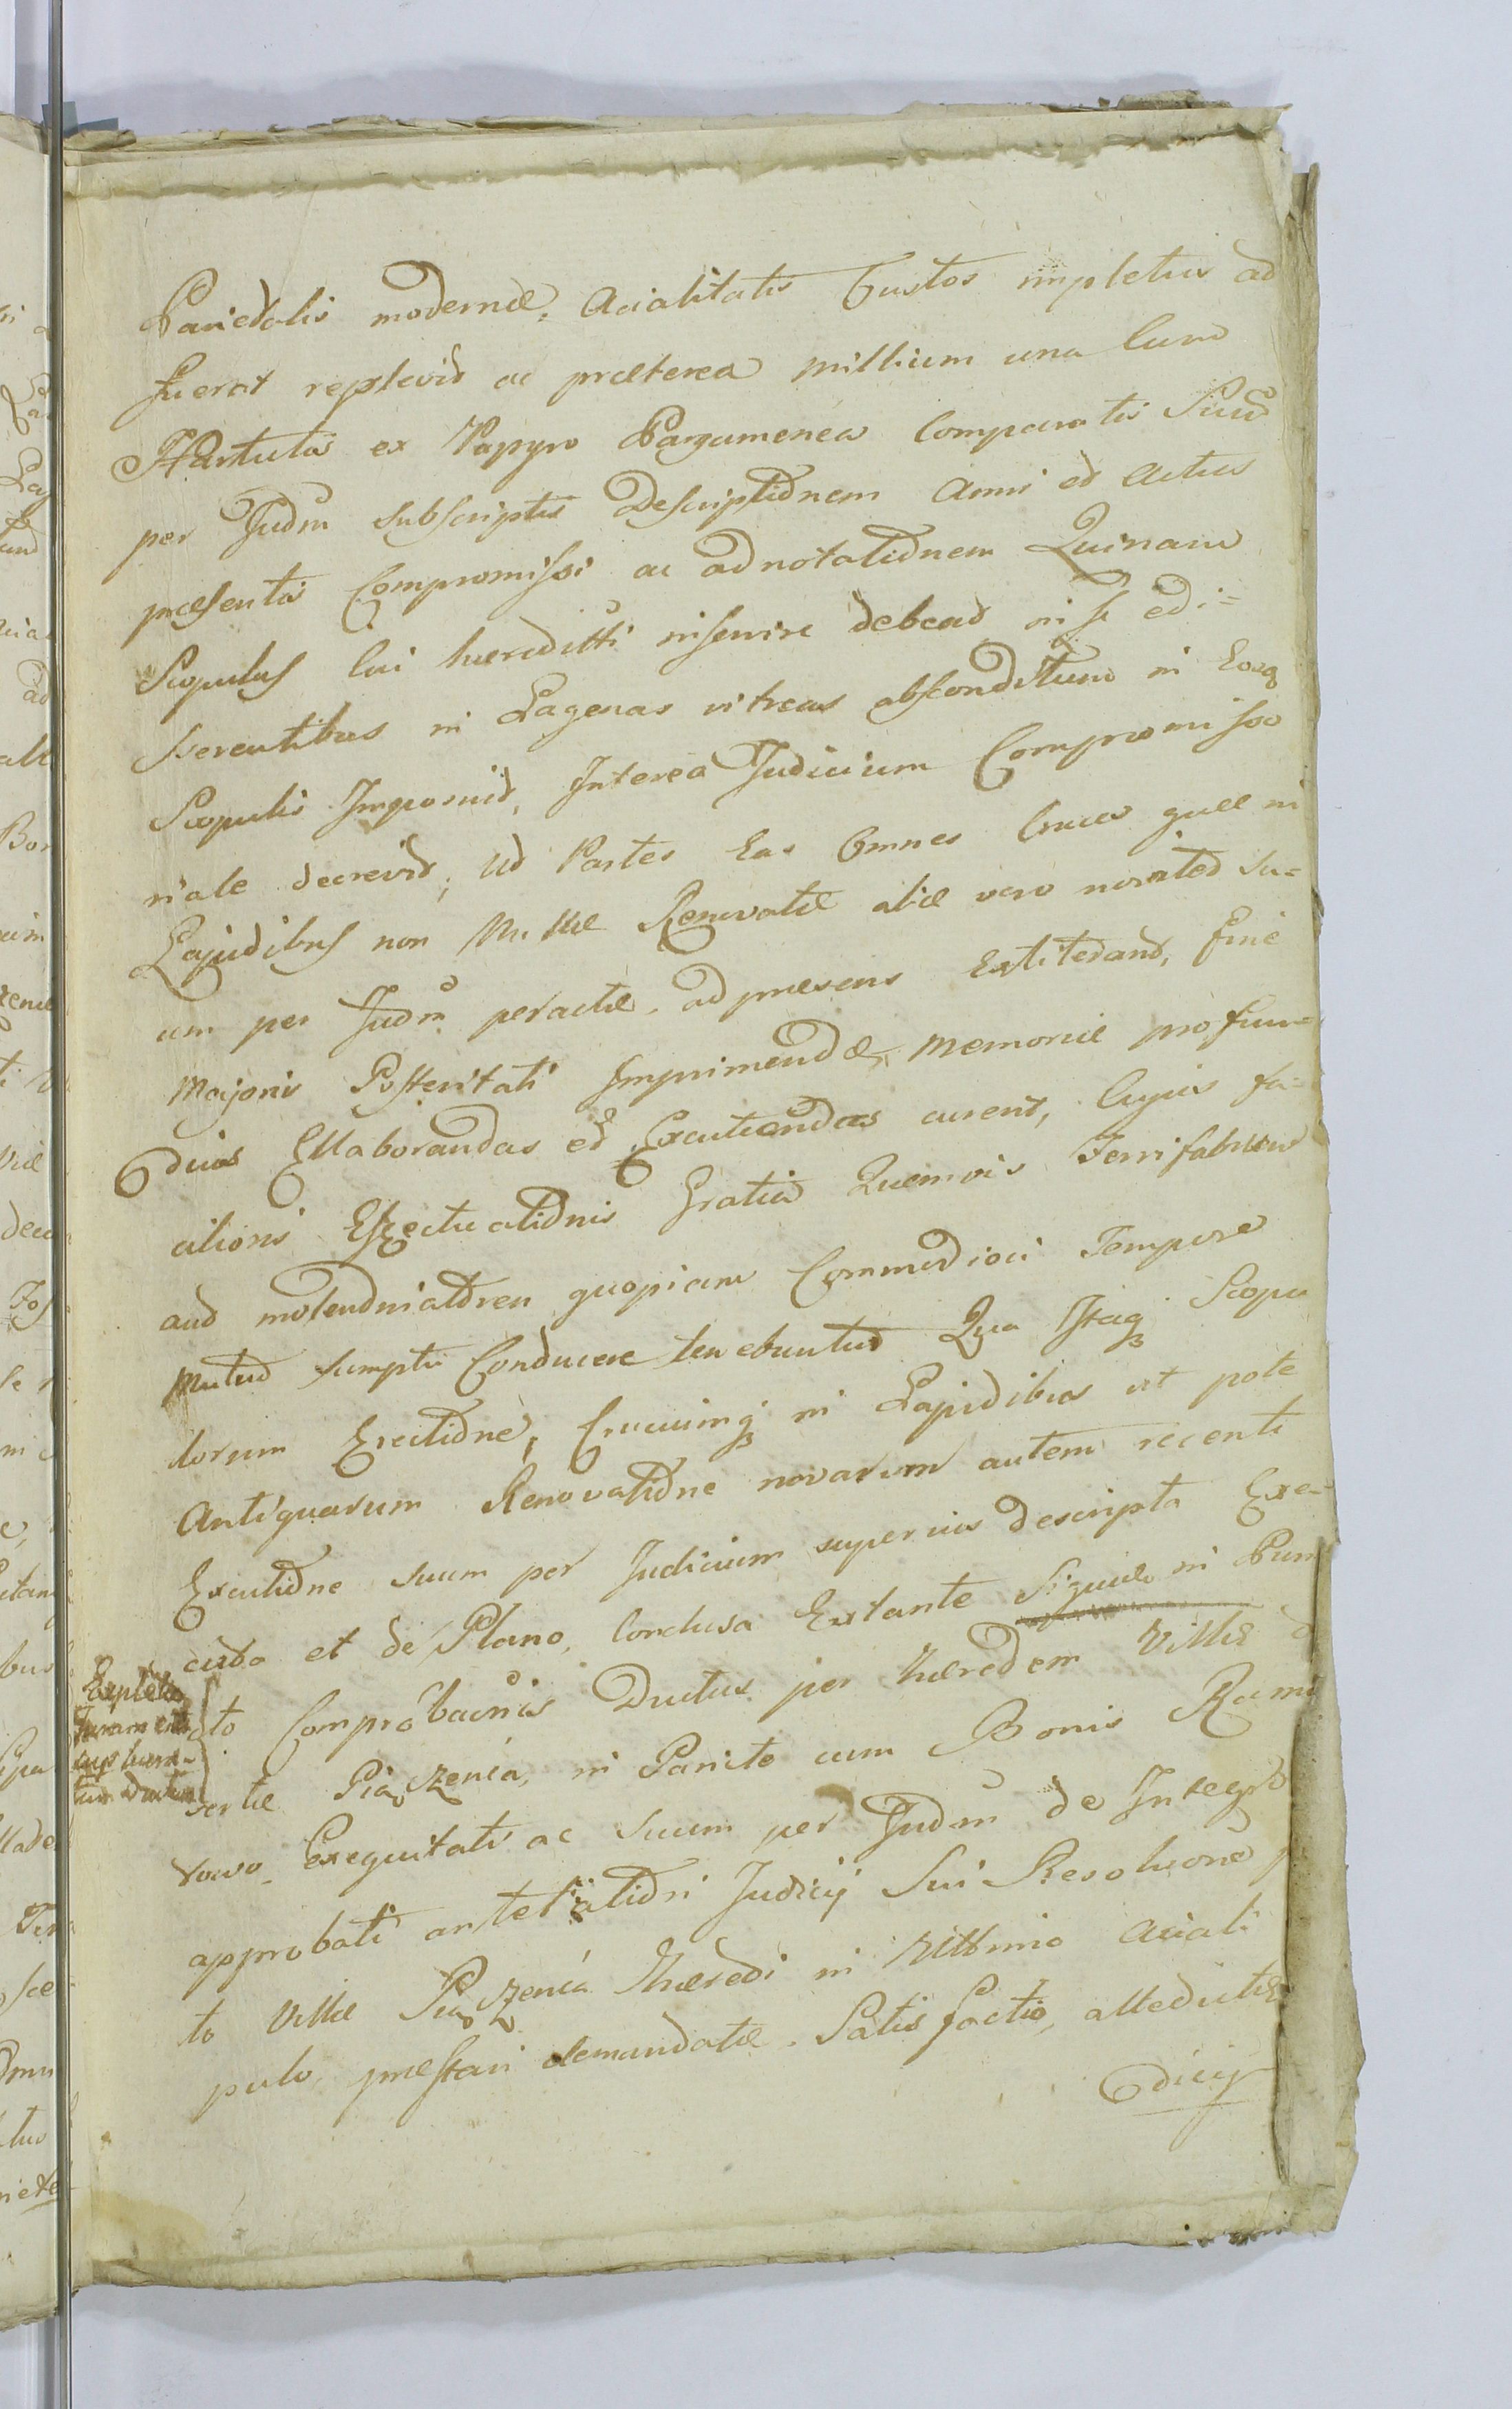 Parietalis modernæ. Acialitatis Custos impletus ad
fuerat replevit ac præterea millium una Cum
Chartulis ex Papyro Pargamenea Comparatis Suis
per Judm subscriptis Descriptionem Anni et Actus
præsentis Compromissi ac adnotationem Quinam
Scopulus Cui hæreditti inservire debeat in se edi=
sserentibus in Lagenas vitreas absconditum in Eosq
Scopulis Imposuit, Interea Judicium Compromisso
riale decrevit, Ut Partes Eas Omnes Cruces quæ in
Lapidibus non Nullæ Renovatæ aliæ vero noviter su=
um per Judm peractæ. ad præsens Extiterant, fine
Majoris Posteritati Imprimendæ, memoriæ profun=
dius Ellaborandas et Excutiendas curent, Cujus fa=
cilioris Effectuationis Gratia Quemvis Ferrifabrum
aut molendinatorem quopiam Commodiori Tempore
mutuo sumptu Conducere tenebuntur Qua Itaq Scopu
lorum Erectione, Crucuimq in Lapidibus ut pote
Antiquarum Renovatione novarum autem recenti
Excutione suum per Judicium superius descripta Exe=
cuta et de Plano, Conclusa Extante Siquidem in Pun
cto Comprobacnis Ductus per Hæredem Villæ d
Expleto
Juramento
super
tum Ductum
sertæ Piaszenia, in Pariete cum Bonis Rum
towo Exequitati ac suum per Judm de Integro
approbati antelatidri Judicij Sui Resolucione p
to Villæ Piaszenia Hæredi in Ultimo Aciali
pulo, præstari demandatæ. Satisfactio, alleductæ
dicij